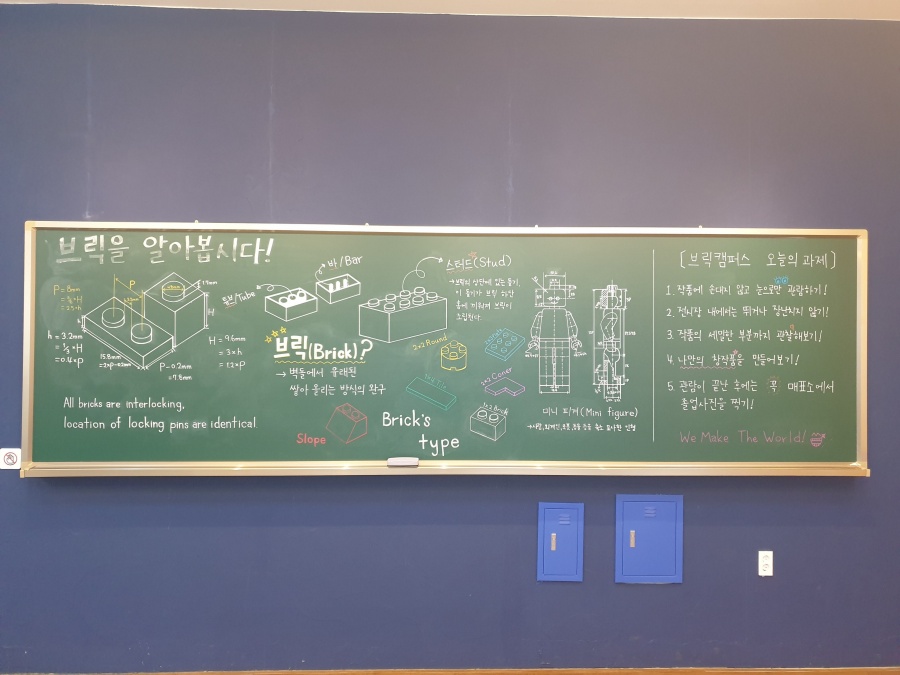 브릭을 알아봅시다!
P = 8mm
= 5/6•H
= 2.5•h
P
1.7mm
H
h = 3.2mm
= 1/3•H
= 0.4•P
15.8mm
= 2×P-0.2mm
P-0.2mm
= 7.8mm
H = 9.6mm
= 3×h
= 1.2×P
All bricks are interlocking,
location of locking pins are identical.
튜브/Tube
바/Bar
브릭(Brick)?
→ 벽돌에서 유래된
쌓아 올리는 방식의 완구
스터드(Stud)
→브릭의 상단에 있는 돌기.
이 돌기가 브릭 하단
홈에 끼워져 브릭이
조립된다.
2×2 Round
2×2 Coner
Slope
Brick's
type
미니 피겨(Mini figure)
[브릭캠퍼스 오늘의 과제]
1. 작품에 손대지 않고 눈으로만 관람하기!
2. 전시장 내에서는 뛰거나 장난치지 않기!
3. 작품의 세밀한 부분까지 관찰해보기!
4. 나만의 창작품을 만들어보기!
5. 관람이 끝난 후에는 꼭 매표소에서
졸업사진을 찍기!
We Make The World!